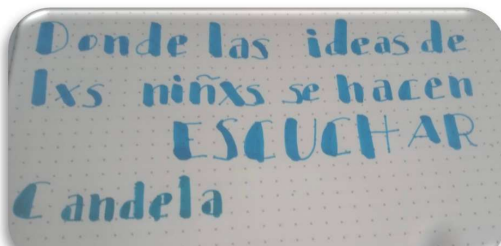 Donde las ideas de
lxs niñxs se hacen
ESCUCHAR
Candela